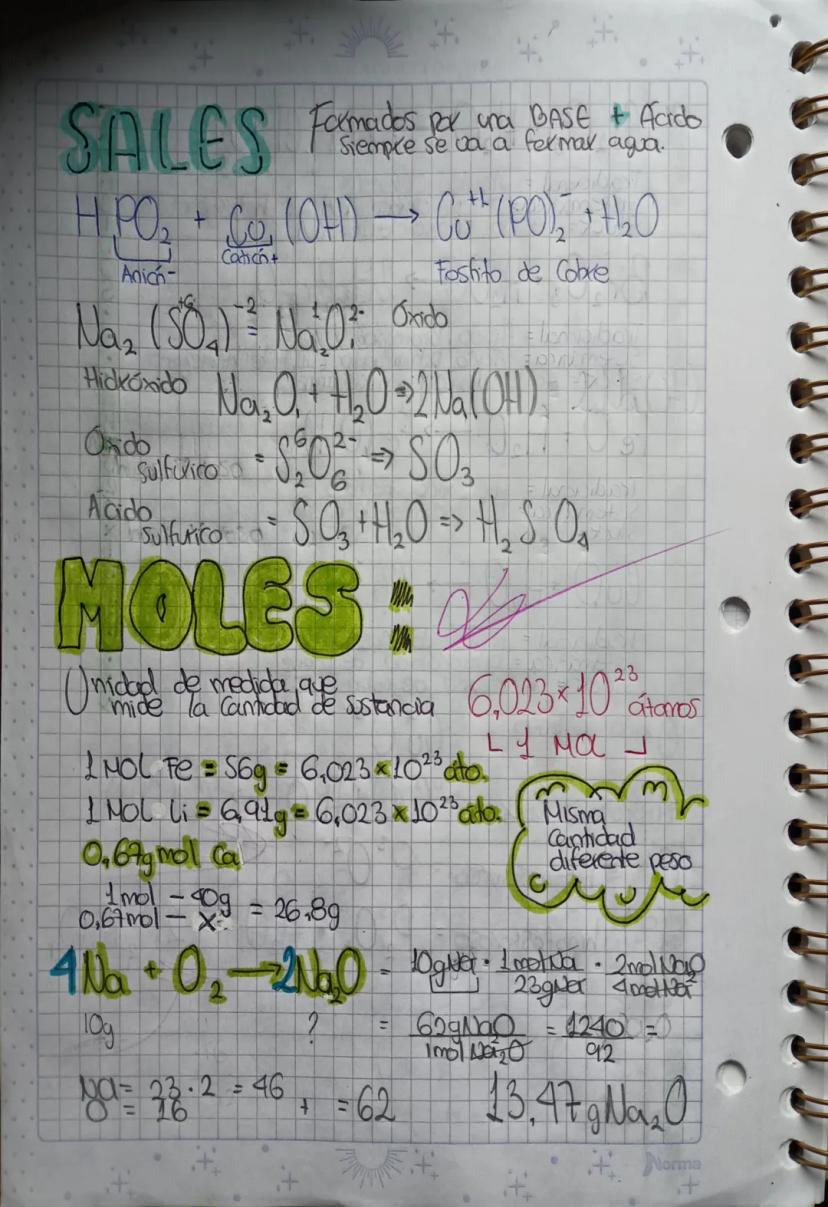 SALES Formados por una BASE + Ácido
siempre se va a formar agua.
HPO₂ + Cu (OH) → Cu⁺¹(PO)₂⁻ + H₂O
Anión- Catión+ Fosfito de Cobre
Na₂ (S⁺⁶O₄)⁻² = Na₂¹O₁²⁻ Óxido
Hidróxido Na₂O₁ + H₂O ⇒ 2Na(OH)
Óxido sulfúrico = S₂⁶O₆²⁻ ⇒ SO₃
Ácido sulfúrico = SO₃ + H₂O ⇒ H₂SO₄
MOLES:
Unidad de medida que
mide la cantidad de sustancia
6,023×10²³ átomos
1 MOL
1 MOL Fe = 56g = 6,023×10²³ áto.
1 MOL Li = 6,91g = 6,023×10²³ áto.
Misma
cantidad
diferente peso
0,67g mol Ca
1mol – 40g
0,67mol – x = 26,8g
4Na + O₂ → 2Na₂O = 10gNa · 1molNa/23gNa · 2molNa₂O/4molNa
10g ? = 62gNaO/1molNa₂O = 1240/92 =
Na = 23·2 = 46
O = 16 + = 62 13,47gNa₂O
Norma